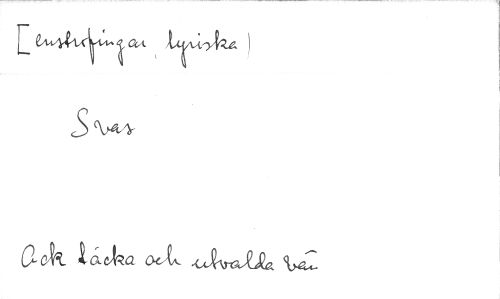 [enstrofingar, lyriska)
Svar
Ack täcka och utvalda vän